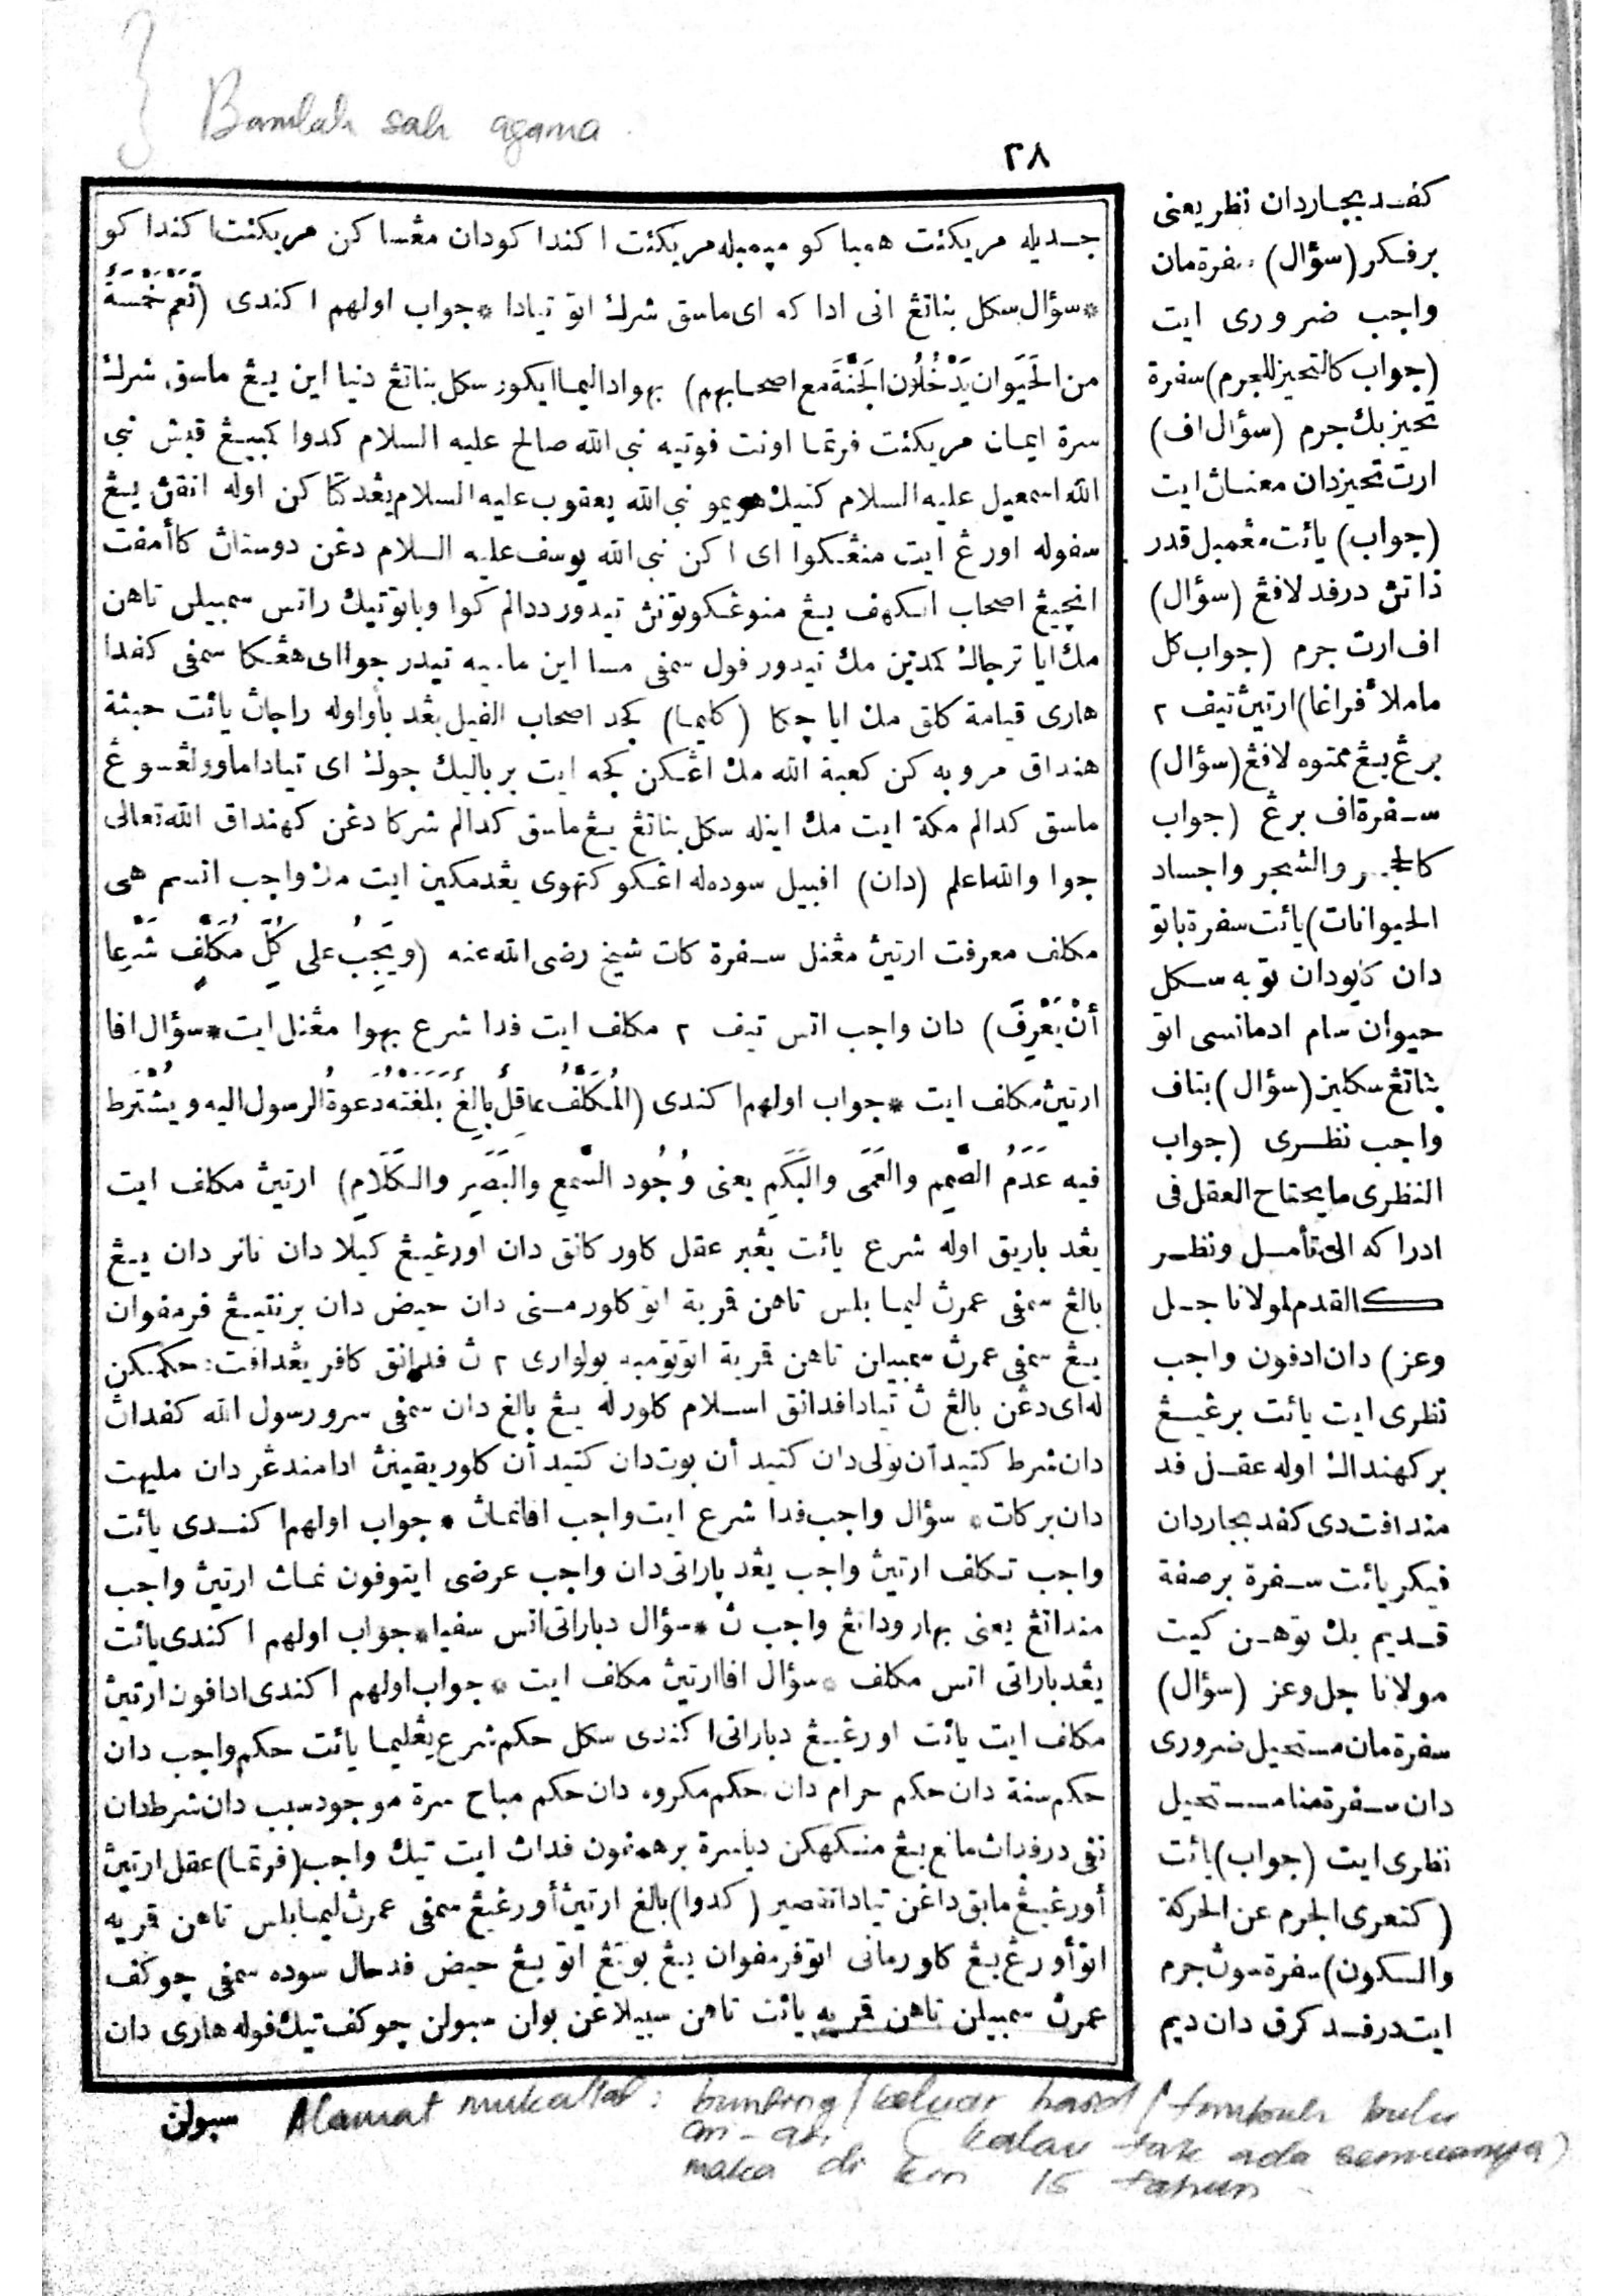 Bamlah sah agama
٢٨
جديله مريكئت همبا كو ميمبله مريكئت اكندا كودان مڠسا كن مريكئت اكندا كو
* سؤال سكل بناتڠ انى ادا كه اى ماسق شرك اتو تيادا * جواب اولهم اكندى (نَعَمْ خَمْسَةٌ
من الحَيَوان يَدْخُلُان الجَنَّةَ مع اصحابهم) بهوا داليما ايكور سكل بناتڠ دنيا اين يڠ ماسق شرك
سرة ايمان مريكئت فرتما اونت فوتيه نبى الله صالح عليه السلام كدوا كمبيڠ قبش نبى
الله اسمعيل عليه السلام كتيك هريمو نبى الله يعقوب عليه السلام يڠدكتا كن اوله انقڽ يڠ
سفوله اورڠ ايت منڠكوا اى اكن نبى الله يوسف عليه السلام دڠن دوستاڽ كأمفت
انجيڠ اصحاب الكهف يڠ منوڠكوتوڽ تيدور ددالم كوا وباتو تيك راتس سمبيلن تاهن
مك ايا ترجاݢ كمدين مك تيدور فول سمفى مسا اين ماسيه تيدر جوا اى هڠكا سمفى كفدا
هارى قيامة كلق مك ايا جݢا (كليما) ݢجه اصحاب الفيل يڠد باوا اوله راجاڽ يائت حبشة
هنداق مروبه كن كعبة الله مك اڠݢن ݢجه ايت برباليك جوݢ اى تيادا ماوو لڠسوڠ
ماسق كدالم مكة ايت مك اينله سكل بناتڠ يڠ ماسق كدالم شركا دڠن كهنداق الله تعالى
جوا والله اعلم (دان) افبيل سوده له اڠكو كتهوى يڠدمكين ايت مك واجب اتسم هى
مكلف معرفت ارتيڽ مڠنل سفرة كات شيخ رضى الله عنه (ويَجِبُ على كُلِّ مُكَلَّفٍ شَرْعا
أنْ يَعْرِفَ) دان واجب اتس تيف ٢ مكلف ايت فدا شرع بهوا مڠنل ايت * سؤال افا
ارتيڽ مكلف ايت * جواب اولهم اكندى (المُكَلَّفُ عاقِل بالِغ بلَغته دَعوةُ الرسول اليه ويشترط
فيه عَدَمُ الصَّمَمِ والعَمَى والبَكَمِ يعنى وُجُود السَّمعِ والبَصَرِ والكَلَامِ) ارتيڽ مكلف ايت
يڠد باريق اوله شرع يائت يڠبر عقل كاور كانق دان اورڠيڠ ݢيلا دان نائر دان يڠ
بالغ سمفى عمرڽ ليما بلس تاهن قمرية اتو كاور منى دان حيض دان برنتيڠ فرمفوان
يڠ سمفى عمرڽ سمبيلن تاهن قمرية اتو تومبه بولوارى ٢ ڽ فدانق كافر يڠدافت حكمكن
له اى دڠن بالغ ڽ تيادا فدانق اسلام كاور له يڠ بالغ دان سمفى سرو رسول الله كفداڽ
دان شرط كتيدأن تولى دان كتيدأن بوت دان كتيدأن كلو ريقينڽ ادا مندڠر دان مليهت
دان بركات * سؤال واجب فدا شرع ايت واجب افا نماڽ * جواب اولهم اكندى يائت
واجب تكلف ارتيڽ واجب يڠد باراتى دان واجب عرضى ايتوفون نماڽ ارتيڽ واجب
منداتڠ يعنى بهارو داتڠ واجب ڽ * سؤال دباراتى اتس سفيا * جواب اولهم اكندى يائت
يڠد باراتى اتس مكلف * سؤال افا ارتيڽ مكلف ايت * جواب اولهم اكندى ادافون ارتيڽ
مكلف ايت يائت اورڠيڠ دباراتى اكندى سكل حكم شرع يڠليما يائت حكم واجب دان
حكم سنة دان حكم حرام دان حكم مكروه دان حكم مباح سرة موجود سبب دان شرط دان
نفى درفداڽ مانع يڠ منݢهكن دباسرة برهمفون فداڽ ايت تيݢ واجب (فرتما) عقل ارتيڽ
أورڠيڠ مابق داڠن تيادا تقصير (كدوا) بالغ ارتيڽ أورڠيڠ سمفى عمرڽ ليما بلس تاهن قمريه
اتو أورڠ يڠ كاور مانى اتو فرمفوان يڠ بونتڠ اتو يڠ حيض فدحال سوده سمفى چوكف
عمرڽ سمبيلن تاهن قمريه يائت تاهن سبيلاڠن بولن سبولن چوكف تيݢ فوله هارى دان
سبولن
كفد بيچاردان نظر يعنى
برفكر (سؤال) سفرة مان
واجب ضرورى ايت
(جواب كالتحيز للجرم) سفرة
تحيز بݢ جرم (سؤال اف)
ارت تحيز دان معناڽ ايت
(جواب) يائت مڠمبل قدر
ذاتڽ درفد لافڠ (سؤال)
اف ارت جرم (جواب كل
ما ملأ فراغا) ارتيڽ تيف ٢
برڠ يڠ ممنوه لافڠ (سؤال)
سفرة اف برڠ (جواب
كالحجر والشجر واجساد
الحيوانات) يائت سفرة باتو
دان كايو دان توبه سكل
حيوان سام ادمانسى اتو
بناتڠ سكلين (سؤال) بتاف
واجب نظرى (جواب
النظرى ما يحتاح العقل فى
ادراكه الى تأمل ونظر
كالقدم لمولانا جل
وعز) دان ادفون واجب
نظرى ايت يائت برڠيڠ
بركهنداك اوله عقل فد
مندافت دى كفد بيچاردان
فيكر يائت سفرة برصفة
قديم بݢ توهن كيت
مولانا جل وعز (سؤال)
سفرة مان مستحيل ضرورى
دان سفرة منا مستحيل
نظرى ايت (جواب) يائت
(كتعرى الجرم عن الحركة
والسكون) سفرة سوڽ جرم
ايت درفد ݢرق دان ديم
Alamat mukallaf : bunting / keluar haid / tumbuh bulu
ari-ari ( kalau tak ada semuanya)
maka di kira 15 tahun